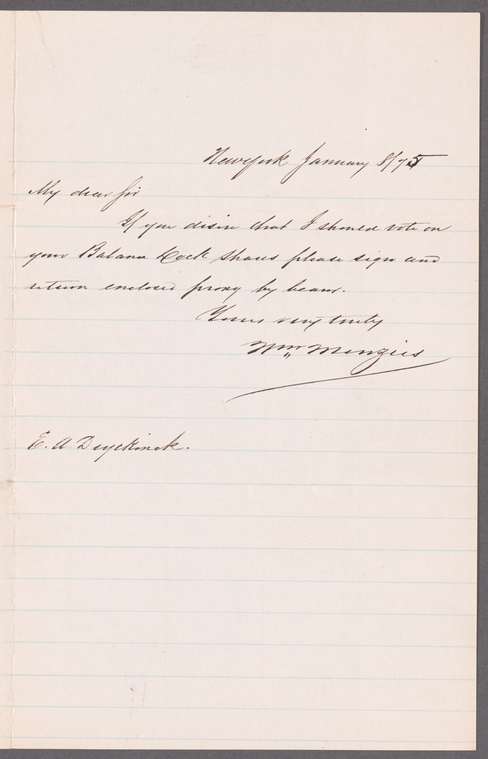 New York January 8/75
My dear Sir
If you desire that I should vote on
your Balance Rock Shares please sign and
return enclosed proxy by bearer.
Yours very truly
Wm Menzies
E. A Duyckinck.